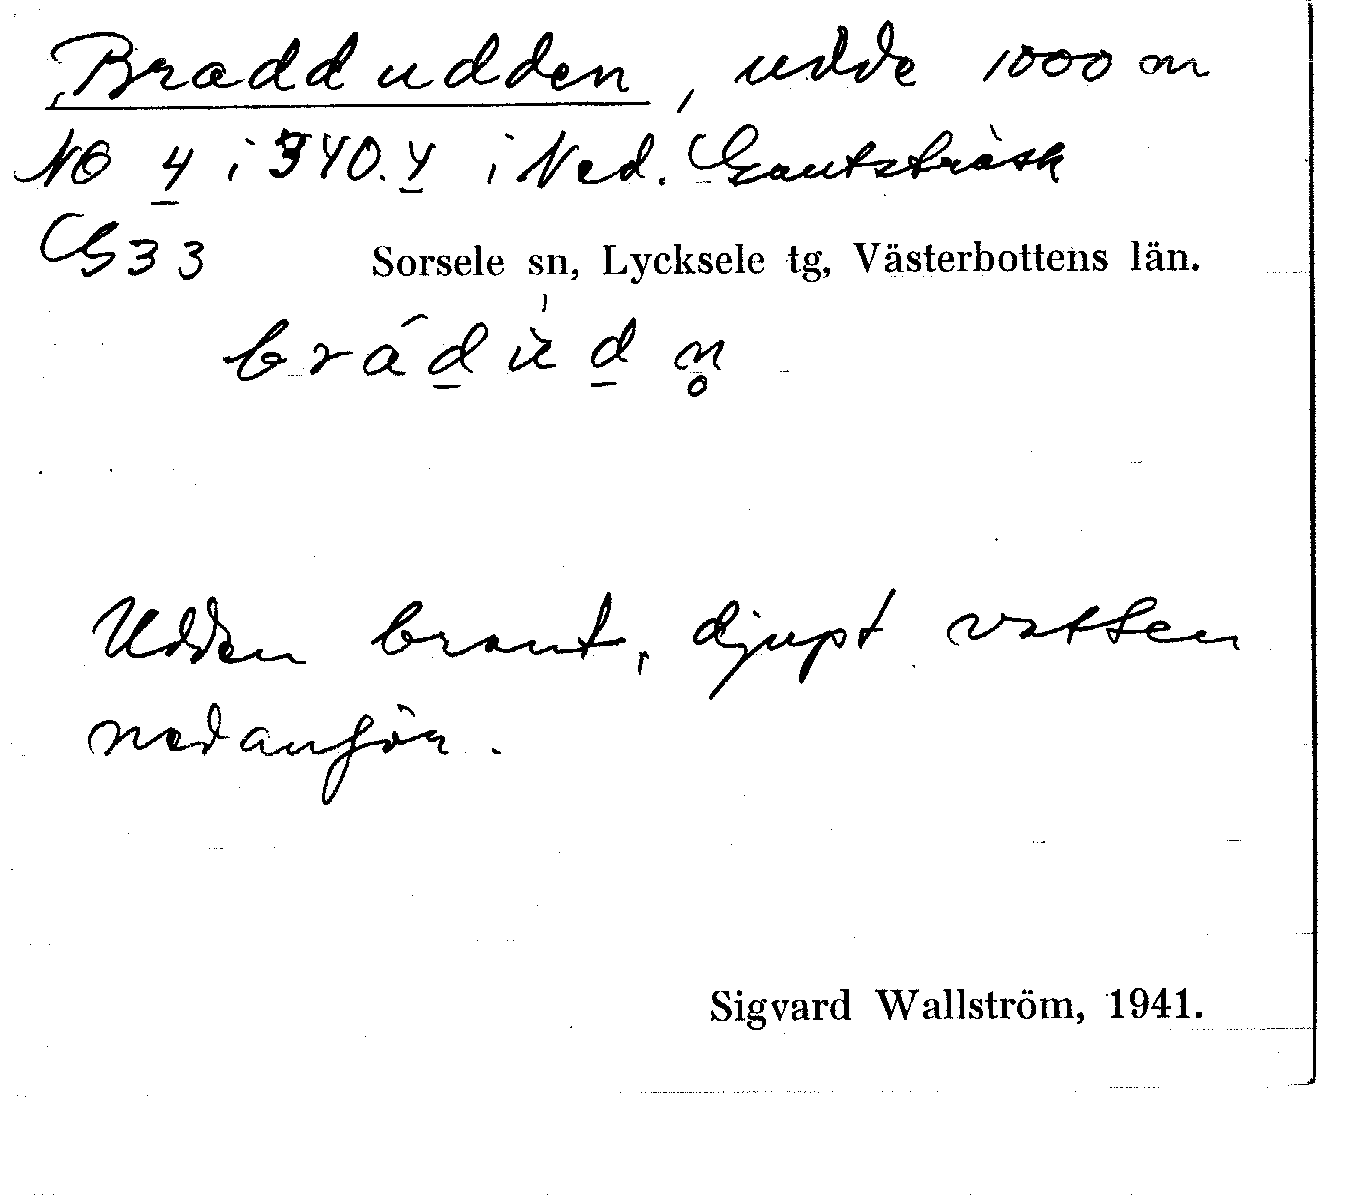 Braddudden, udde 1000 m
NO 4 i 340.4 i Ned. Gautsträsk
G33 Sorsele sn, Lycksele tg, Västerbottens län.
brádùdn̥
Udden brant, djupt vatten
nedanför.
Sigvard Wallström, 1941.